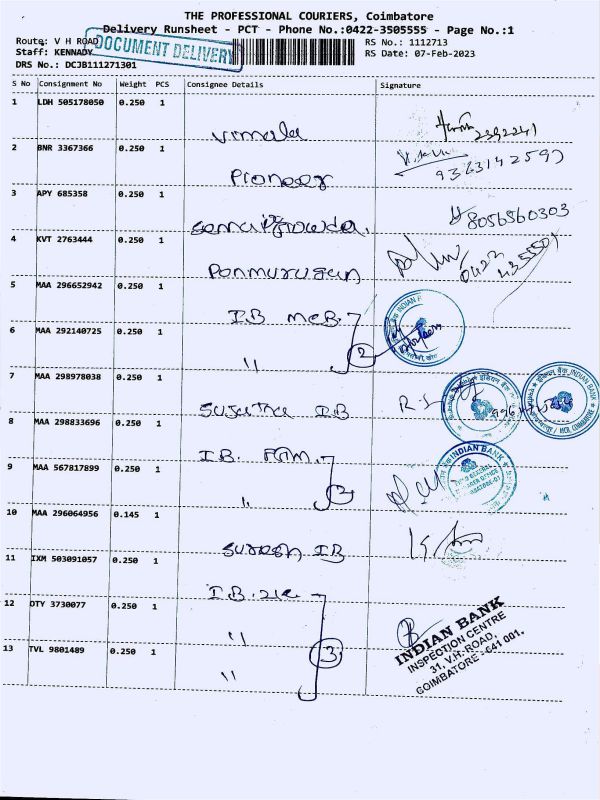 THE PROFESSIONAL COURIERS, Coimbatore
Delivery Runsheet - PCT - Phone No.:0422-3505555 - Page No.:1
Route: V H ROAD
DOCUMENT DELIVERY
RS No.: 1112713
Staff: KENNADY
RS Date: 07-Feb-2023
DRS No.: DCJB111271301
S No Consignment No Weight PCS Consignee Details Signature
1 LDH 505178050 0.250 1 Vimala
2 BNR 3367366 0.250 1 Pioneer 9363142597
3 APY 685358 0.250 1 8056560303
4 KVT 2763444 0.250 1 Ponmurugan 0422
5 MAA 296652942 0.250 1 I.B McB.
6 MAA 292140725 0.250 1 " 2
7 MAA 298978038 0.250 1 Sujatha IB
INDIAN BANK
8 MAA 298833696 0.250 1 I.B.
INDIAN BANK
9 MAA 567817899 0.250 1 " 2
10 MAA 296064956 0.145 1 Suresh IB
11 IXM 503091057 0.250 1 I.B.
12 DTY 3730077 0.250 1 "
13 TVL 9801489 0.250 1 " 3
INDIAN BANK
INSPECTION CENTRE
31, V.H. ROAD,
COIMBATORE - 641 001.